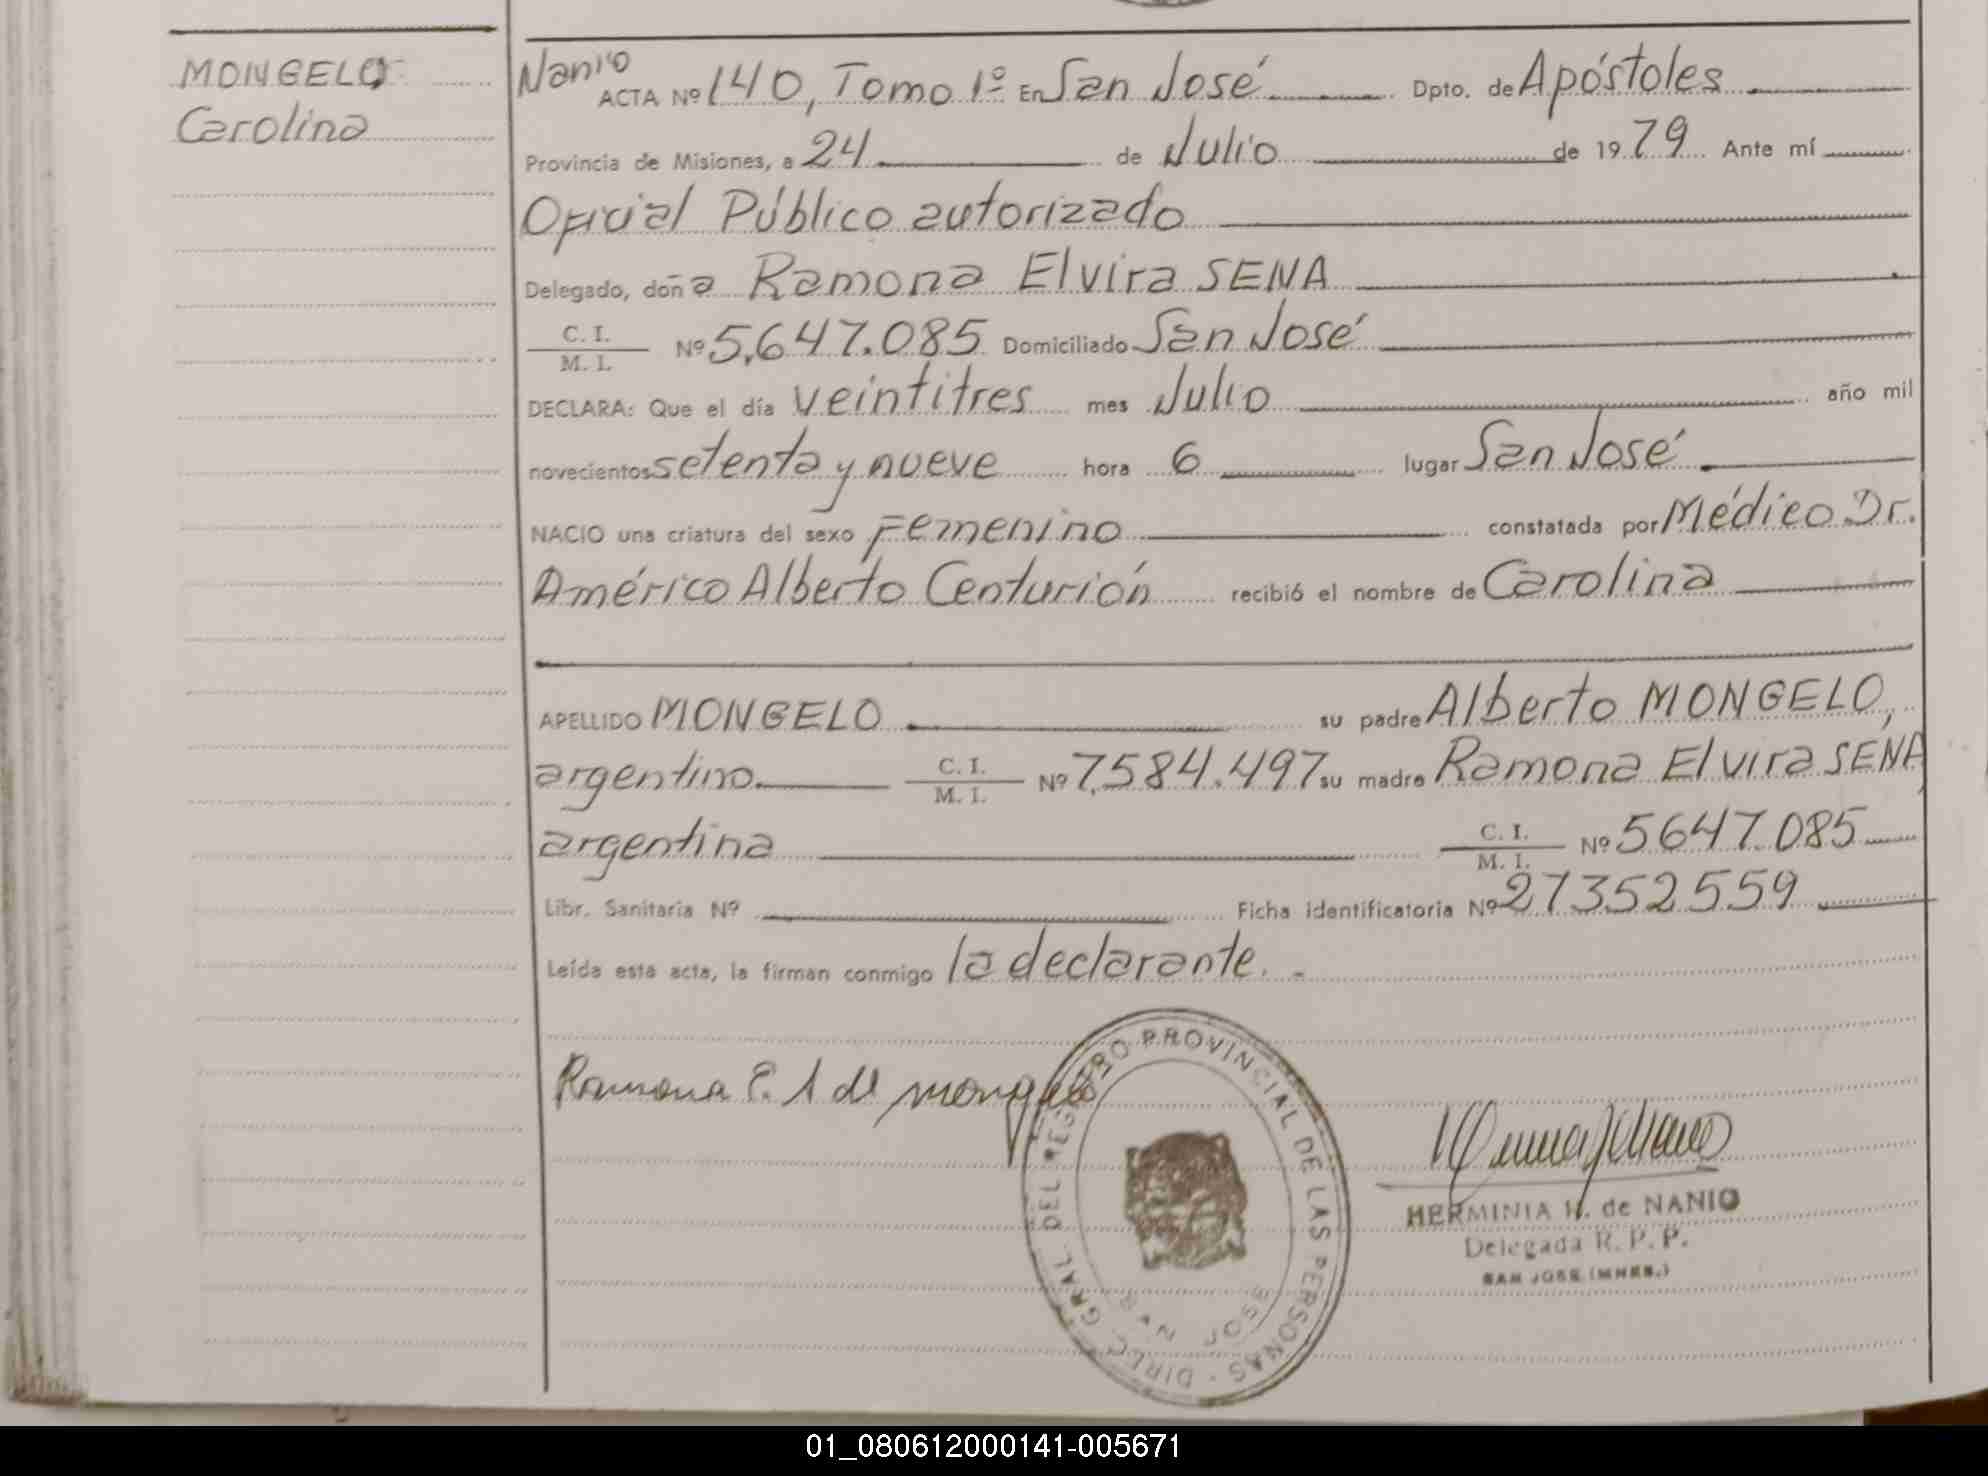 MONGELO
Carolina
Nanio
ACTA Nº 140, Tomo 1º En San José Dpto. de Apóstoles
Provincia de Misiones, a 24 de Julio de 1979 Ante mí
Oficial Público autorizado
Delegado, doña Ramona Elvira SENA
C. I.
M. I. Nº 5.647.085 Domiciliado San José
DECLARA: Que el día veintitres mes Julio año mil
novecientos setenta y nueve hora 6 lugar San José
NACIO una criatura del sexo Femenino constatada por Médico Dr.
Américo Alberto Centurión recibió el nombre de Carolina
APELLIDO MONGELO su padre Alberto MONGELO,
argentino. C. I. M. I. Nº 7.584.497 su madre Ramona Elvira SENA,
argentina C. I. M. I. Nº 5647.085
Libr. Sanitaria Nº Ficha identificatoria Nº 27352559
Leída esta acta, la firman conmigo la declarante. -
Ramona E. S de mongelo
DIREC. GRAL. DEL REGISTRO PROVINCIAL DE LAS PERSONAS -
SAN JOSE
HERMINIA H. de NANIO
Delegada R. P. P.
SAN JOSE (MNES.)
01_080612000141-005671